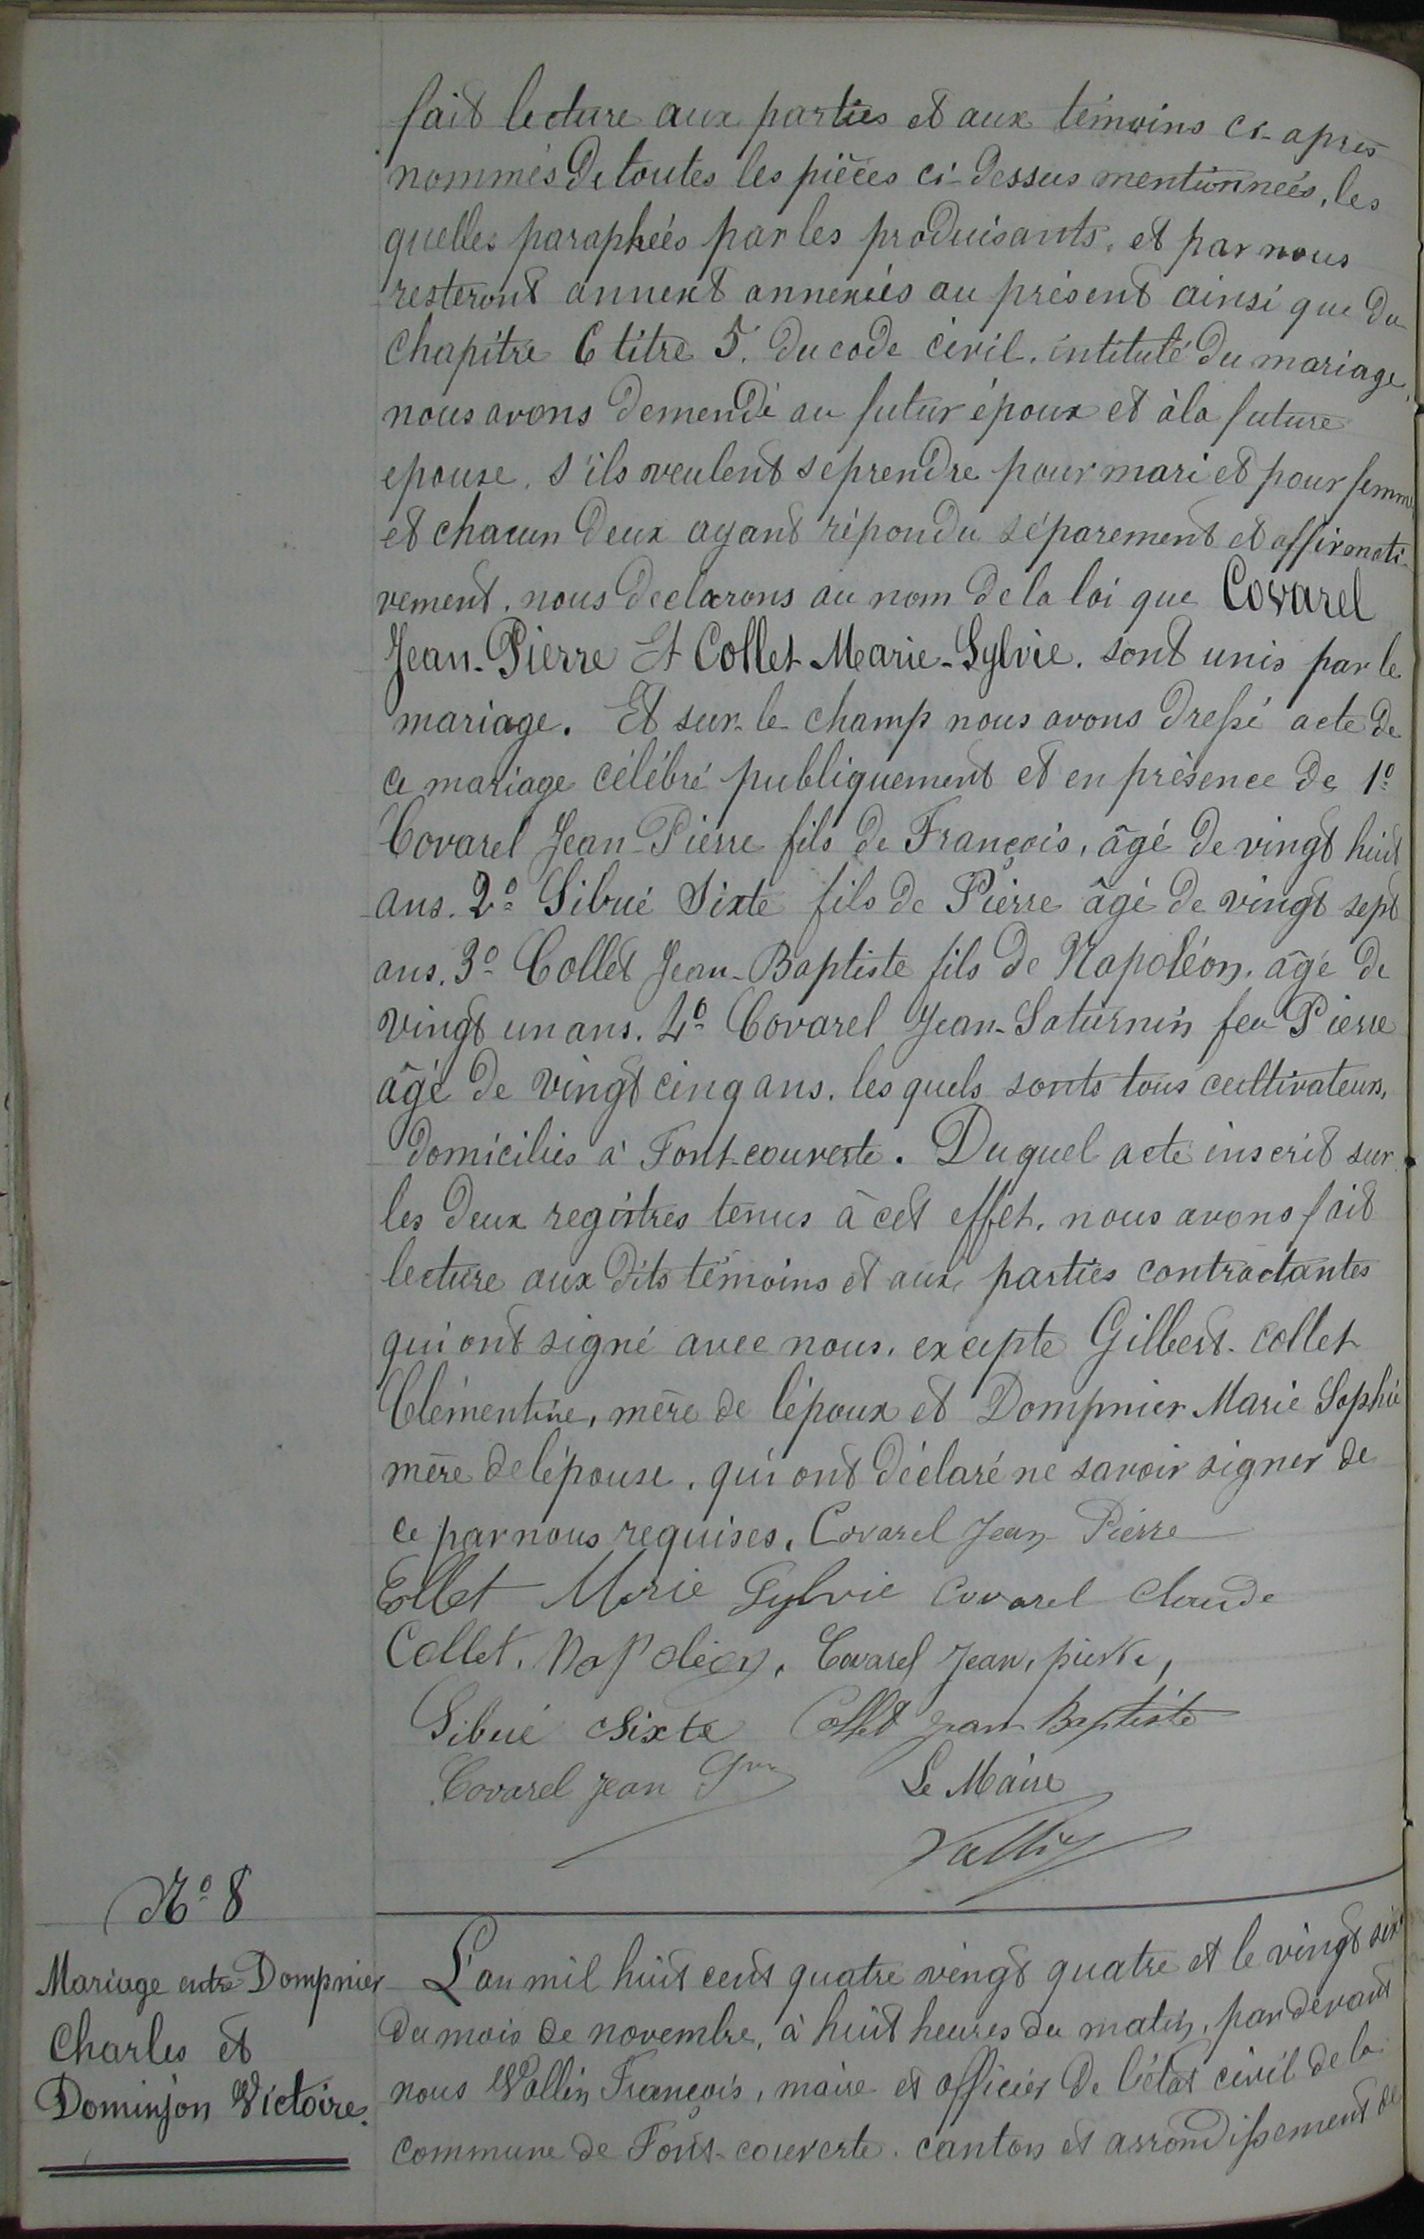 fait lecture aux parties et aux témoins ci-après
nommés de toutes les pièces ci-dessus mentionneés, les
quelles parapheés par les produisants, et par nous
resteront annext annexiés au présent ainsi que du
chapitre 6 titre 5. du code civil, intitulé du mariage,
nous avons demendé au futur époux et à la future
epouse, s'ils veulent se prendre pour mari et pour femme
et chacun deux ayant répondu séparement et affirmati-
vement, nous declarons au nom de la loi que Covarel
Jean-Pierre Et Collet Marie-Sylvie. sont unis par le
mariage. Et sur-le champ nous avons dressé acte de
ce mariage célébré publiquement et en présence de 1º
Covarel Jean-Pierre fils de François, âgé de vingt huit
ans. 2º Sibué Sixte fils de Pierre âgé de vingt sept
ans. 3º Collet Jean-Baptiste fils de Napoléon, âgé de
vingt un ans. 4º Covarel Jean-Saturnin feu Pierre
âgé de vingt cinq ans. les quels sonts tous cultivateurs,
domiciliés à Font-couverte. Du quel acte inscrit sur
les deux registres tenus à cet effet, nous avons fait
lecture aux dits témoins et aux parties contractantes
qui ont signé avec nous, excepte Gilbert-collet
Clémentine, mère de l'époux et Dompnier Marie Sophie
mère de lépouse, qui ont déclaré ne savoir signer de
ce par nous requises. Covarel Jean Pierre
Collet Marie Sylvie Covarel Claude
Collet. Napoléon, Covarel Jean, pierre,
Sibué Sixte Collet Jean Baptiste
Covarel Jean Le Maire
Vallin
Nº 8
Mariage entre Dompnier
Charles et
Dominjon Victoire.
L'an mil huit cent quatre vingt quatre et le vingt six
du mois de novembre, à huit heures du matin, par devant
nous Vallin François, maire et officier de l'état civil de la
commune de Font-couverte. canton et arrondissement de